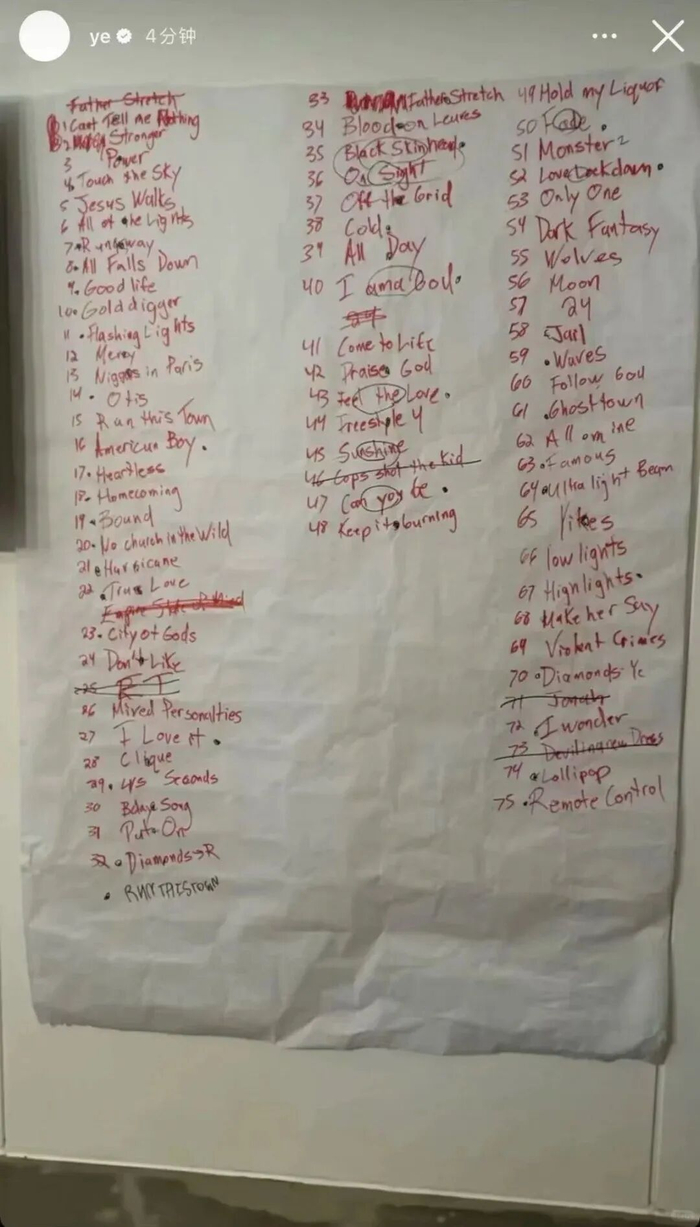 ye 4分钟
Father Stretch
1 Cant Tell me Nothing
2 Stronger
3 Power
4 Touch the Sky
5 Jesus Walks
6 All of the Lights
7 Runaway
8. All Falls Down
9. Good life
10. Gold digger
11. Flashing Lights
12 Mercy
13 Niggas in Paris
14. Otis
15 Run this Town
16 American Boy.
17. Heartless
18. Homecoming
19. Bound
20. No church in the Wild
21 Hurricane
22 True Love
Empire State of Mind
23. City of Gods
24 Don't Like
25
26 Mixed Personalties
27 I Love it.
28 Clique
29. 4/5 Seconds
30 Bday Song
31 Put On
32 Diamonds→R
• RUN THIS TOWN
33 Father Stretch
34 Blood on Leaves
35 Black Skinhead.
36 On Sight
37 Off the Grid
38 Cold.
39 All Day
40 I am a God.
41 Come to Life
42 Praise God
43 Feel the Love.
44 Freestyle 4
45 Sunshine
46 Cops shot the kid
47 Can you be.
48 Keep it burning
49 Hold my Liquor
50 Fade.
51 Monster 2
52 Love Lockdown.
53 Only One
54 Dark Fantasy
55 Wolves
56 Moon
57 24
58 Jail
59 .Waves
60 Follow God
61 .Ghost town
62 All mine
63. Famous
64 Ultra light Beam
65 Yikes
66 low lights
67 Highlights.
68 Make her Say
69 Violent Crimes
70 Diamonds-Ye
71 Jonah
72. I wonder
73 Devil in a new Dress
74 Lollipop
75. Remote Control